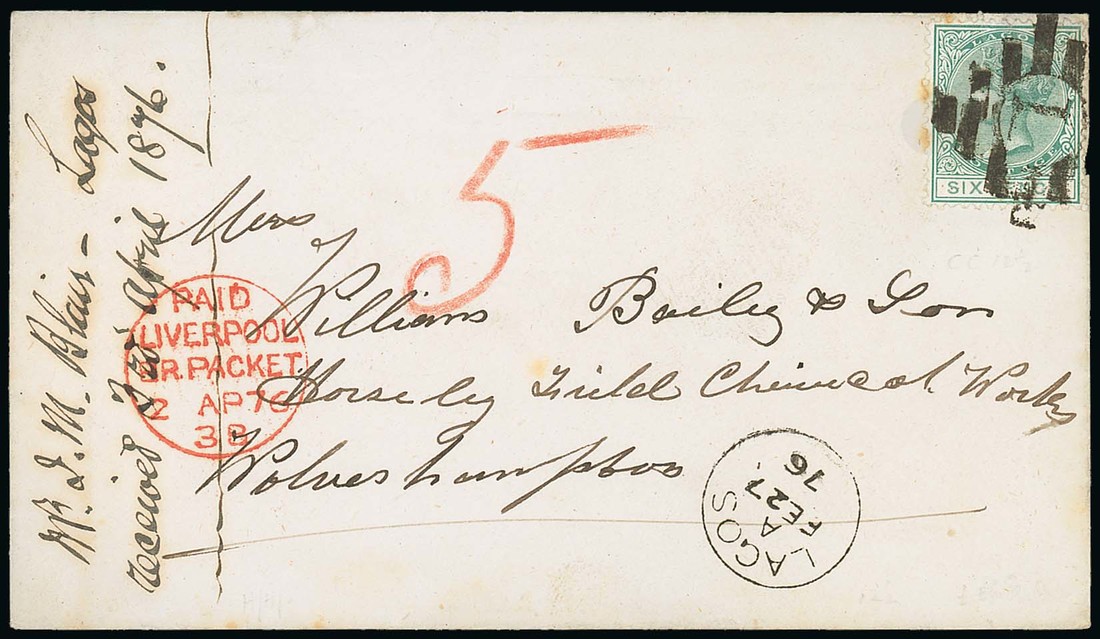 W. J. M. Blair - Lagos
received 3rd April 1876.
LAGOS
SIX PENCE
5
Mess
William Bailey & Son
Horseley Field Chemical Works
Wolverhampton
PAID
LIVERPOOL
BR. PACKET
2 AP 76
3B
LAGOS
A
FE 27
76